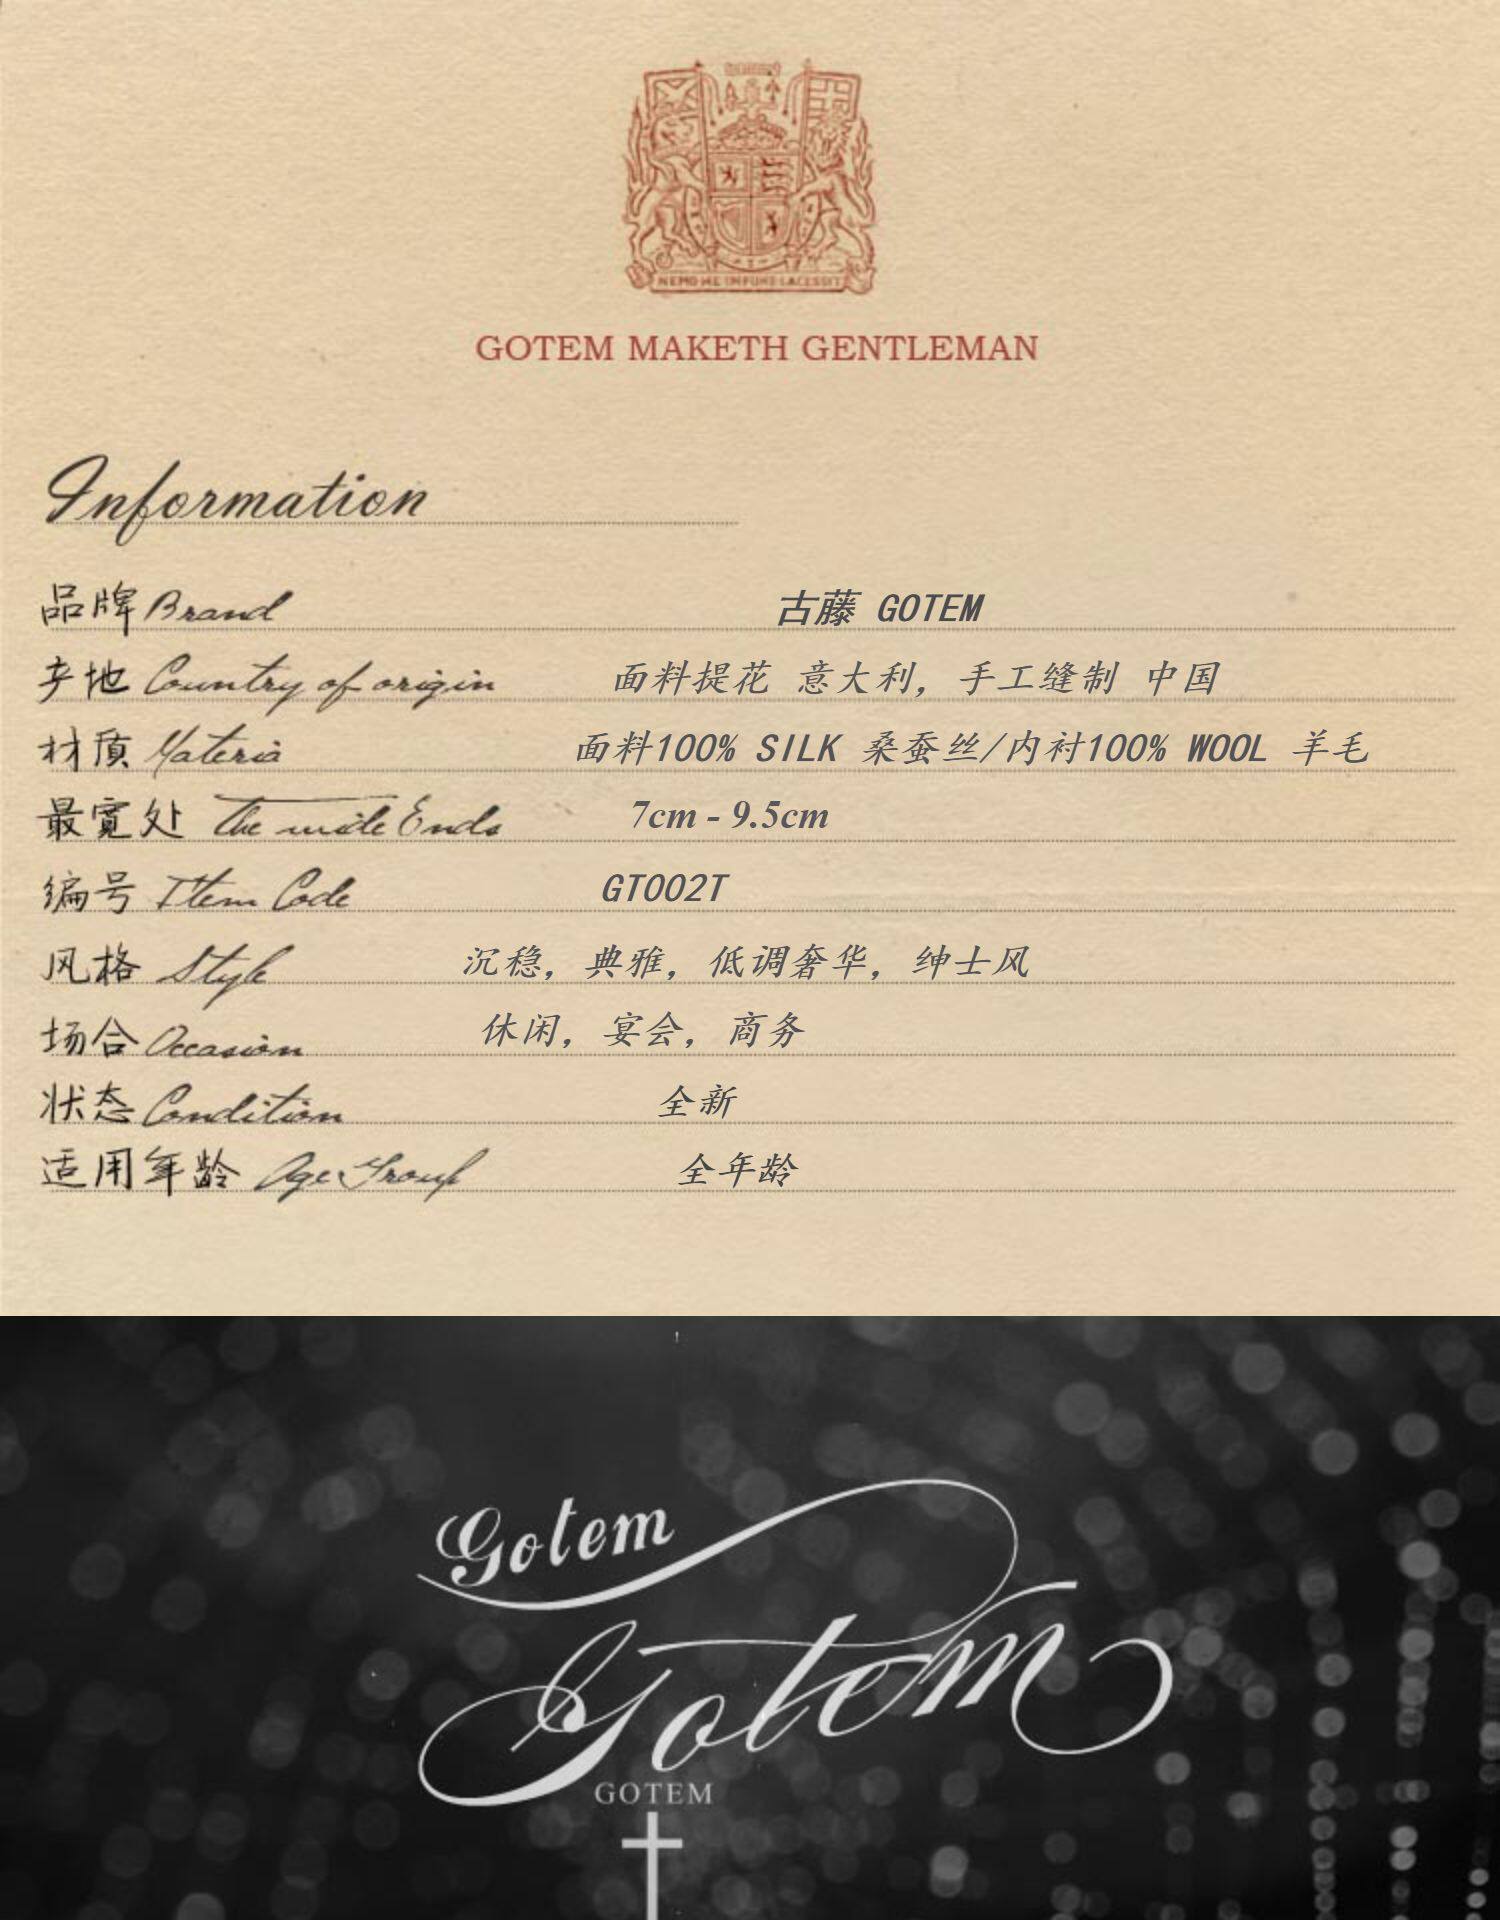 NEMO ME IMPUNE LACESSIT
GOTEM MAKETH GENTLEMAN
Information
品牌 Brand 古藤 GOTEM
产地 Country of origin 面料提花 意大利，手工缝制 中国
材质 Materia 面料100% SILK 桑蚕丝/内衬100% WOOL 羊毛
最宽处 The wide Ends 7cm - 9.5cm
编号 Item Code GT002T
风格 Style 沉稳，典雅，低调奢华，绅士风
场合 Occasion 休闲，宴会，商务
状态 Condition 全新
适用年龄 Age Group 全年龄
Gotem
Gotem
GOTEM